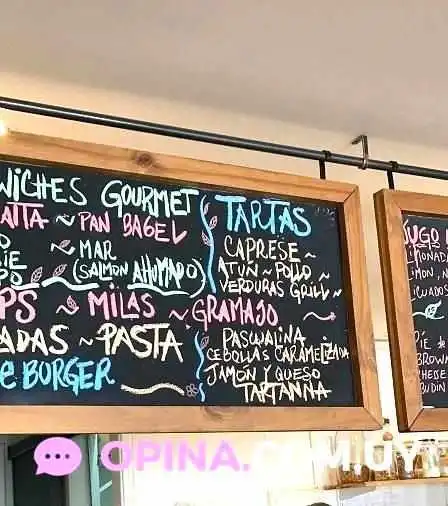 WICHES GOURMET
ATTA ~ PAN BAGEL
~ MAR
(SALMON AHUMADO)
PS ~ MILAS ~ GRAMAJO
ADAS ~ PASTA
BURGER
TARTAS
CAPRESE ~
ATUN ~ POLLO ~
VERDURAS GRILL ~
PASCUALINA
CEBOLLAS CARAMELIZADA
JAMON Y QUESO
TARTANNA
JUGO
MONADA
LIMON
PIE
BROWN
CHEESE
BUDIN
OPINA.COM.UY